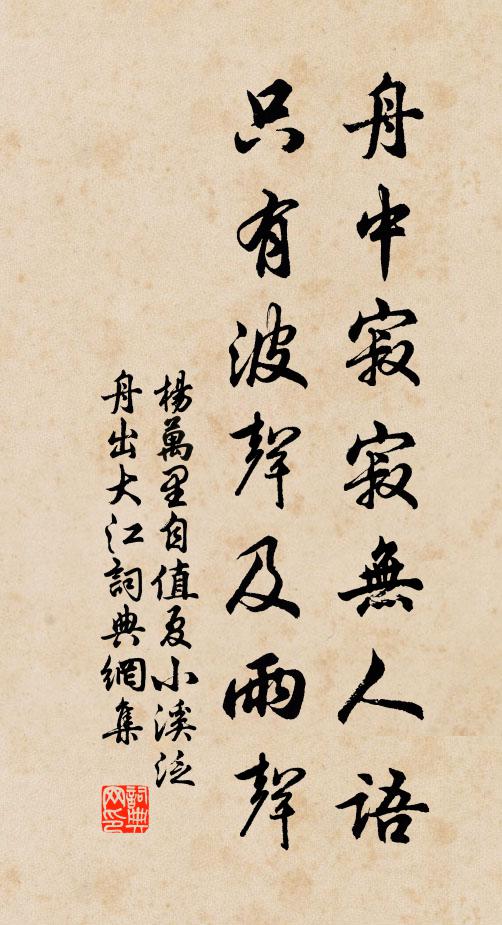 舟中寂寂無人語
只有波聲及雨聲
楊萬里自值夏小溪泛
舟出大江詞典網集
詞典
网印